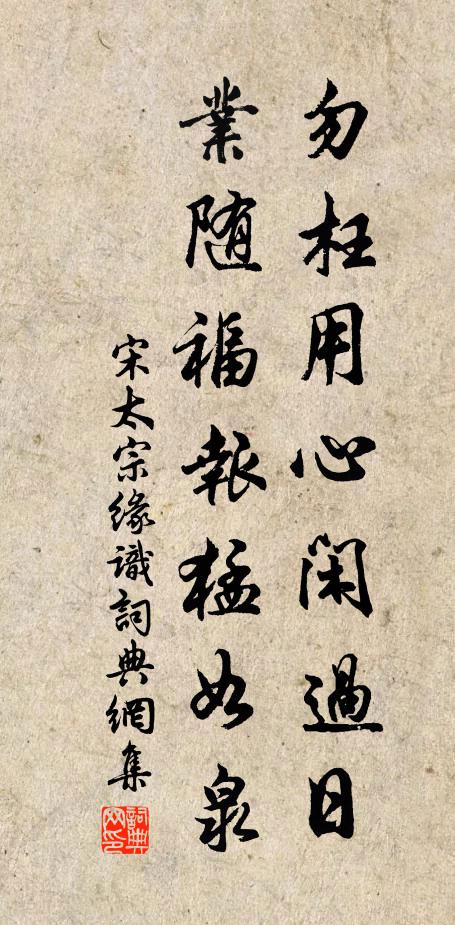 勿枉用心閑過日
業随福報猛如泉
宋太宗緣識詞典網集
詞典
网印